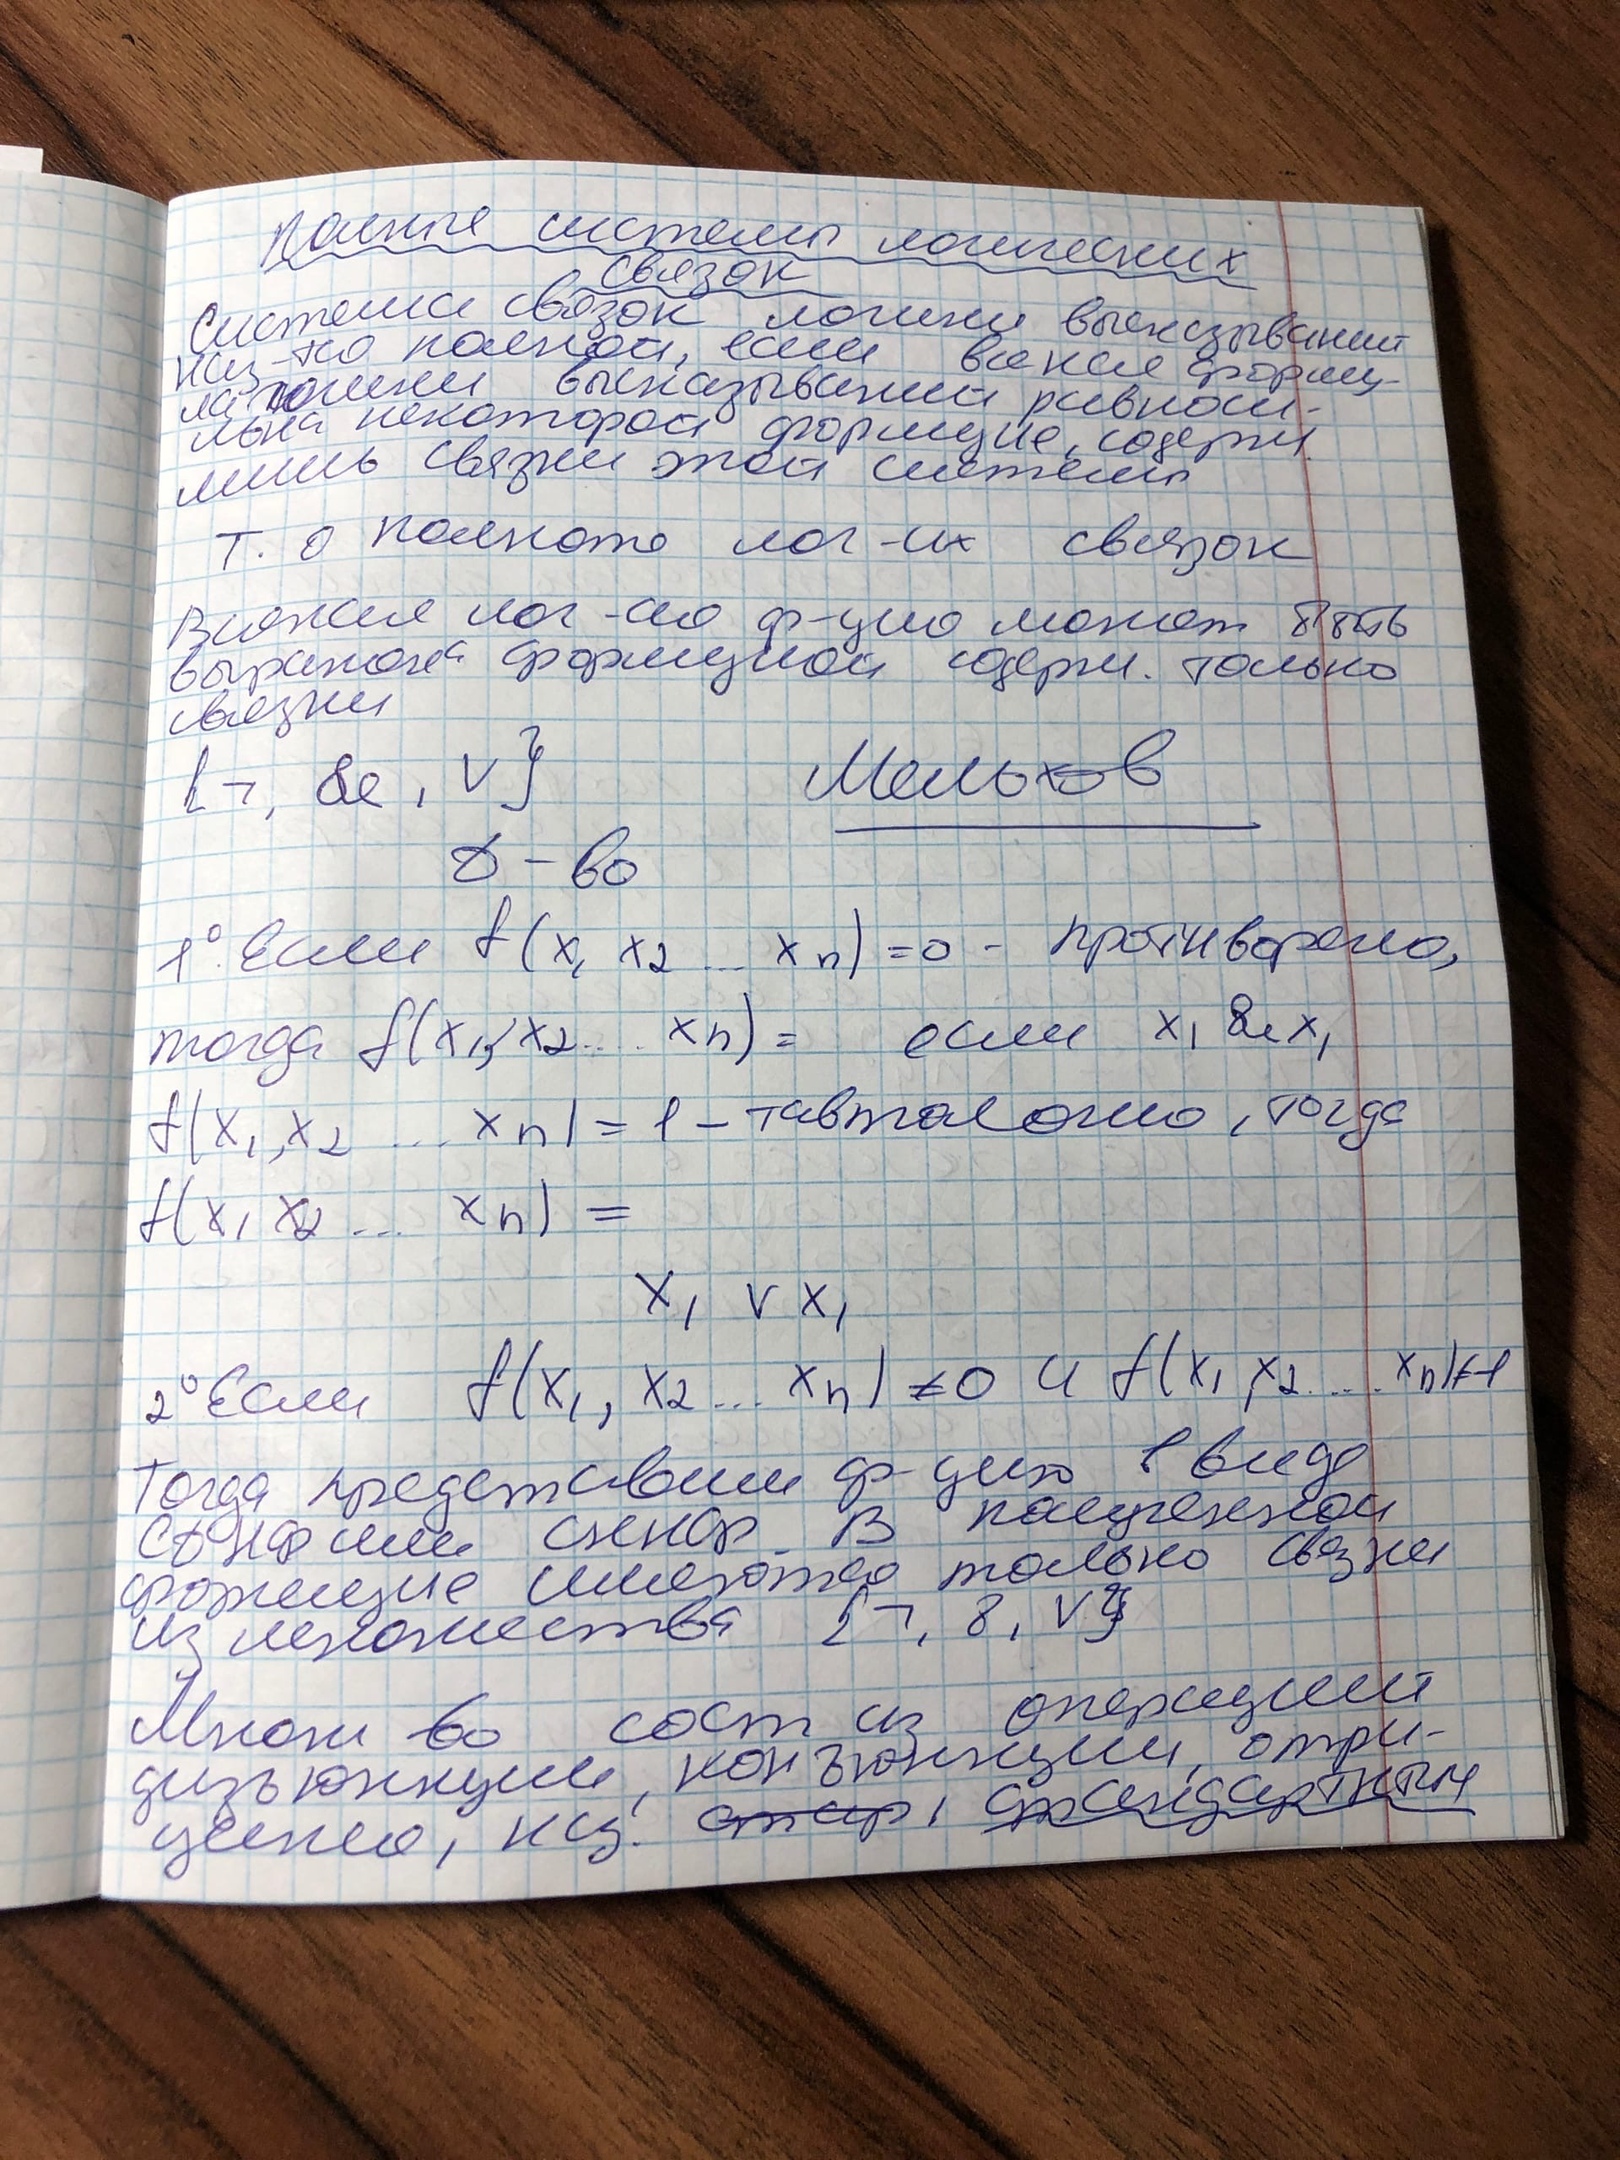 Полные системы логических
связок
Система связок логики высказываний
наз-ся полной, если всякая форму-
ла логики высказываний равноси-
льна некоторой формуле, содерж.
лишь связки этой системы
Т. о полноте лог-их связок
Всякая лог-ая ф-цию может быть
выражена формулой содерж. только
связки
{¬, &, ∨}
Мельхов
д-во
1° Если f(x, x2 ... xn) = 0 - противореч,
тогда f(x1, x2 ... xn) = если x1 & x1
f(x1, x2 ... xn) = 1 - тавтологию, тогда
f(x1 x2 ... xn) =
x1 ∨ x1
2° Если f(x1, x2 ... xn) ≠ 0 и f(x1, x2 ... xn) ≠ 1
Тогда представим ф-цию в виде
сднф или скнф. В полученной
формуле имеются только связки
из множества {¬, &, ∨}
Множ-во сост из операций
дизъюнкции, конъюнкции, отри-
цению, наз. стандартным